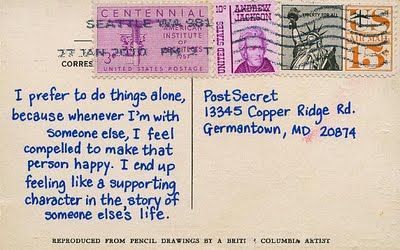 CENTENNIAL
AMERICAN
INSTITUTE
OF
ARCHITECTS
1857 1957
3¢
UNITED STATES POSTAGE
10¢
ANDREW
JACKSON
UNITED STATES
LIBERTY FOR ALL
US
AIR MAIL
15¢
SEATTLE WA 981
27 JAN 2010 PM 3 T
CORRES
I prefer to do things alone,
because whenever I'm with
someone else, I feel
compelled to make that
person happy. I end up
feeling like a supporting
character in the story of
someone else's life.
PostSecret
13345 Copper Ridge Rd.
Germantown, MD 20874
REPRODUCED FROM PENCIL DRAWINGS BY A BRITI COLUMBIA ARTIST